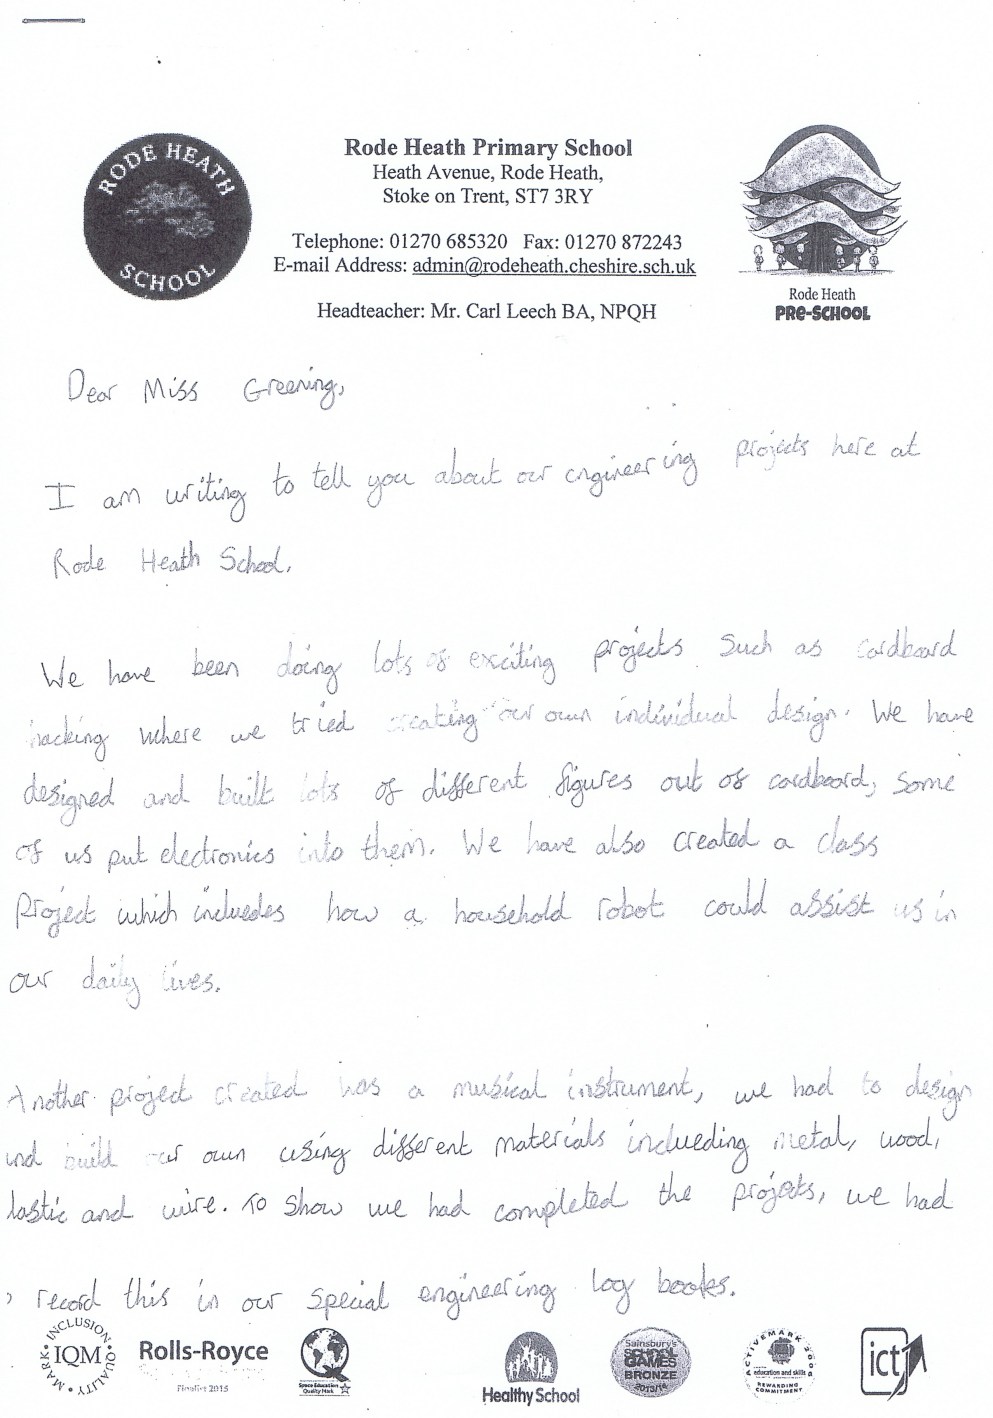 RODE HEATH
SCHOOL
Rode Heath Primary School
Heath Avenue, Rode Heath,
Stoke on Trent, ST7 3RY
Telephone: 01270 685320 Fax: 01270 872243
E-mail Address: admin@rodeheath.cheshire.sch.uk
Headteacher: Mr. Carl Leech BA, NPQH
Rode Heath
PRE-SCHOOL
Dear Miss Greening,
I am writing to tell you about our engineering projects here at
Rode Heath School.
We have been doing lots of exciting projects such as cardboard
hacking where we tried creating our own individual design. We have
designed and built lots of different figures out of cardboard, some
of us put electronics into them. We have also created a class
Project which incluedes how a household robot could assist us in
our daily lives.
Another project created was a musical instrument, we had to design
and build our own using different materials inclueding metal, wood,
lastic and wire. To show we had completed the projects, we had
record this in our special engineering log books.
INCLUSION QUALITY MARK
IQM
Rolls-Royce
Finalist 2015
Space Education
Quality Mark
Healthy School
Sainsbury's
SCHOOL
GAMES
BRONZE
2013/14
ACTIVEMARK
education and skills
REWARDING
COMMITMENT
ict